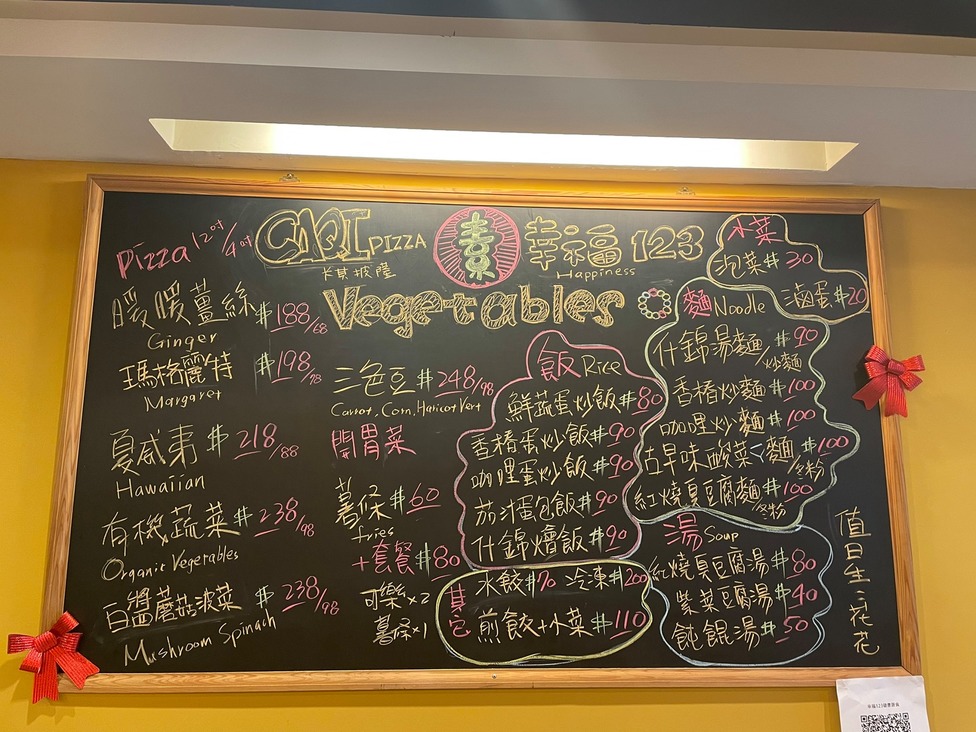 CAQI PIZZA
卡其披薩
素
幸福 123
Happiness
Vegetables
Pizza 12吋/4吋
暖暖薑絲 $188/68
Ginger
瑪格麗特 $198/78
Margaret
夏威夷 $218/88
Hawaiian
有機蔬菜 $238/98
Organic Vegetables
白醬蘑菇菠菜 $238/98
Mushroom Spinach
三色豆 $248/98
Carrot, Corn, Haricot Vert
開胃菜
薯條 $60
fries
+套餐 $80
可樂x2
薯條x1
飯 Rice
鮮蔬蛋炒飯 $80
香椿蛋炒飯 $90
咖哩蛋炒飯 $90
茄汁蛋包飯 $90
什錦燴飯 $90
其它
水餃 $70 冷凍 $200
煎餃+小菜 $110
小菜
泡菜 $30
滷蛋 $20
麵 Noodle
什錦湯麵/炒麵 $90
香椿炒麵 $100
咖哩炒麵 $100
古早味酸菜麵/冬粉 $100
紅燒臭豆腐麵/冬粉 $100
湯 Soup
紅燒臭豆腐湯 $80
紫菜豆腐湯 $40
餛飩湯 $50
值日生:花花